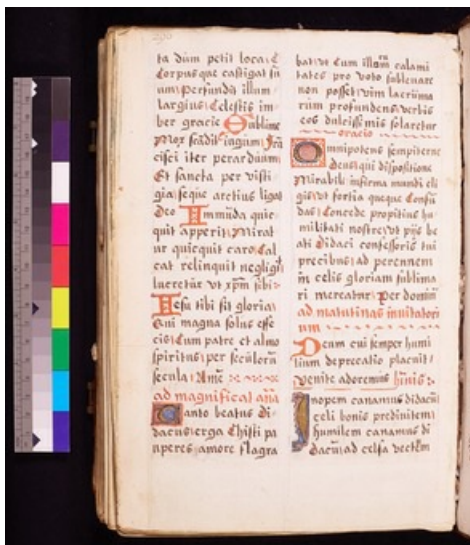 ta dum petit loca: C
Corpusque castigat su
um: Perfundit illum
largius: Celestis im
ber gracie: Sublime
Mox scādit iugum: Frā
cisci iter per arduum:
Et sancta per vesti
gia: seque arctius ligat
Deo: Immūda quic
quit apperit: Mirat
ur quicquit caro: Cal
cat relinquit negligit
lucretur vt xp̄m sibi:
Iesu tibi sit gloria:
Qui magna solus esse
cis: Cum patre et almo
spiritus: per seculorū
secula: Amē
ad magnificat aña
Canto beatus Di
dacus: erga Christi pa
uperes: amore flagra
bat: vt Cum illorum calami
tates pro voto subleuare
non posset: vim lacrima
rum profundens: verbis
eos dulcissimis solaretur
oracio
Omnipotens sempiterne
Deus: qui dispositione
Mirabili infirma mundi eli
gis: vt fortia queque Confū
das: Concede propitius hu
militati nostre: vt pijs be
ati Didaci confessoris tui
precibus: ad perennem
in celis gloriam sublima
ri mereatur: Per dominū
ad matutinas inuitatori
um
Deum cui semper humi
lium deprecatio placuit:
Venite adoremus hīnis:
Inopem canamus didacū
celi bonis preditum:
humilem canamus di
dacū: ad celsa vectēm